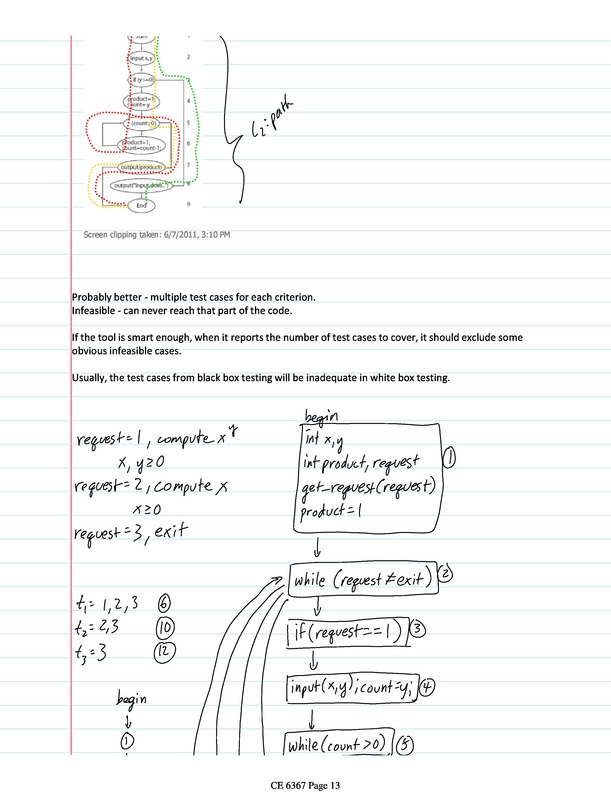 start
input x,y
2
if (y>=0)
product=1
count= y
4
(count>0)
5
product=1;
count=count-1;
6
output(product)
7
8
End
9
path
Screen clipping taken: 6/7/2011, 3:10 PM
Probably better - multiple test cases for each criterion.
Infeasible - can never reach that part of the code.
If the tool is smart enough, when it reports the number of test cases to cover, it should exclude some
obvious infeasible cases.
Usually, the test cases from black box testing will be inadequate in white box testing.
request=1, compute x^y
x, y≥0
request=2, compute x
x≥0
request=3, exit
t₁= 1,2,3 ⑥
t₂= 2,3 ⑩
t₃= 3 ⑫
begin
①
begin
int x,y
int product, request
get_request(request)
product=1
①
while (request≠exit) ②
if(request==1) ③
input(x,y);count=y; ④
while(count>0) ⑤
CE 6367 Page 13